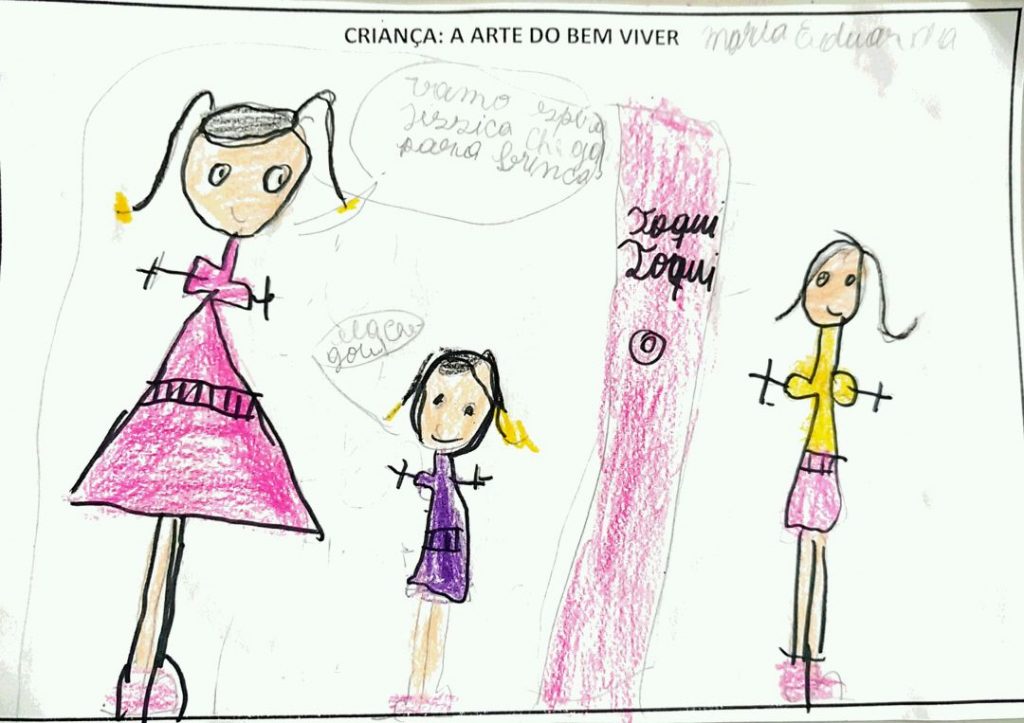 CRIANÇA: A ARTE DO BEM VIVER
maria Eduarda
vamo espera
Jessica chega
para brinca
Toqui
Toqui